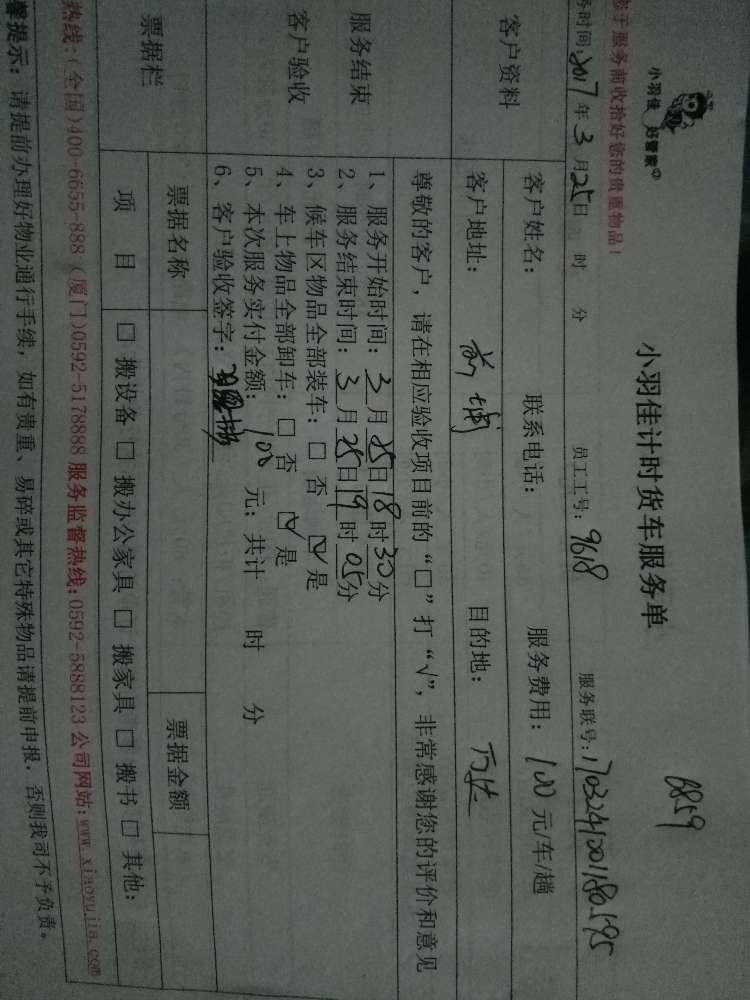 小羽佳 好管家
小羽佳计时货车服务单
8859
您于服务前收拾好您的贵重物品！
务时间：2017年3月25日 时 分 员工工号：9618 服务联号：17032410011805195
客户资料
客户姓名： 联系电话： 服务费用：100元/车/趟
客户地址：前埔 目的地：
服务结束
客户验收
尊敬的客户，请在相应验收项目前的“□”打“√”，非常感谢您的评价和意见
1、服务开始时间：3月25日18时30分
2、服务结束时间：3月25日19时05分
3、候车区物品全部装车：□否 ☑是
4、车上物品全部卸车：□否 ☑是
5、本次服务实付金额：100元；共计 时 分
6、客户验收签字：
票据栏
票据名称 票据金额
项目 □搬设备 □搬办公家具 □搬家具 □搬书 □其他：
热线：(全国)400-6655-888 (厦门)0592-5178888 服务监督热线：0592-5888123 公司网站：www.xiaoyujia.com
馨提示：请提前办理好物业通行手续，如有贵重、易碎或其它特殊物品请提前申报，否则我司不予负责。